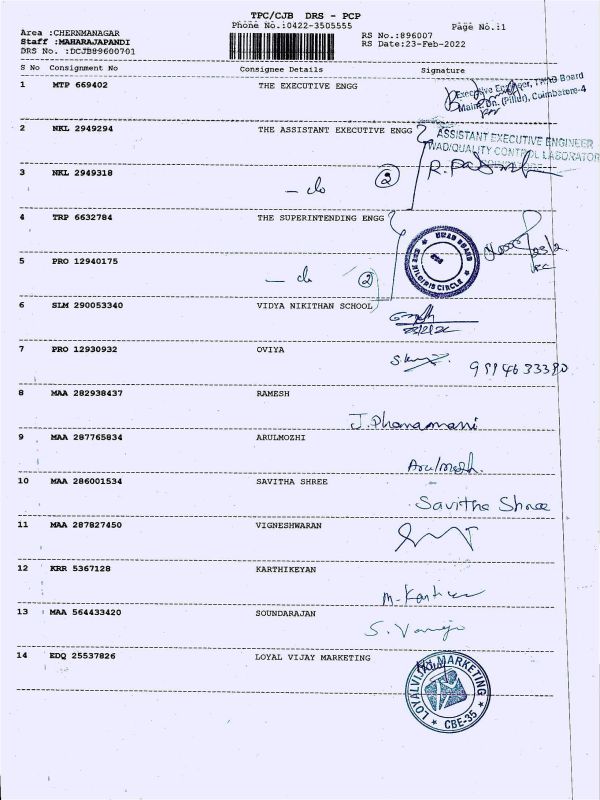 TPC/CJB DRS - PCP
Phone No.:0422-3505555
Page No.:1
Area :CHERNMANAGAR
Staff :MAHARAJAPANDI
DRS No. :DCJB89600701
RS No.:896007
RS Date:23-Feb-2022
S No Consignment No Consignee Details Signature
1 MTP 669402 THE EXECUTIVE ENGG
Executive Engineer, TWAD Board
Main. Dn. (Pillur), Coimbatore-4
2 NKL 2949294 THE ASSISTANT EXECUTIVE ENGG
ASSISTANT EXECUTIVE ENGINEER
WAD/QUALITY CONTROL LABORATOR
3 NKL 2949318
— do 2
4 TRP 6632784 THE SUPERINTENDING ENGG
TWAD BOARD
NILGIRIS CIRCLE
5 PRO 12940175
— do 2
6 SLM 290053340 VIDYA NIKITHAN SCHOOL
7 PRO 12930932 OVIYA
8 MAA 282938437 RAMESH
J. Dhanamani
9 MAA 287765834 ARULMOZHI
10 MAA 286001534 SAVITHA SHREE
Savitha Shree
11 MAA 287827450 VIGNESHWARAN
12 KRR 5367128 KARTHIKEYAN
13 MAA 564433420 SOUNDARAJAN
14 EDQ 25537826 LOYAL VIJAY MARKETING
LOYAL VIJAY MARKETING
CBE-35